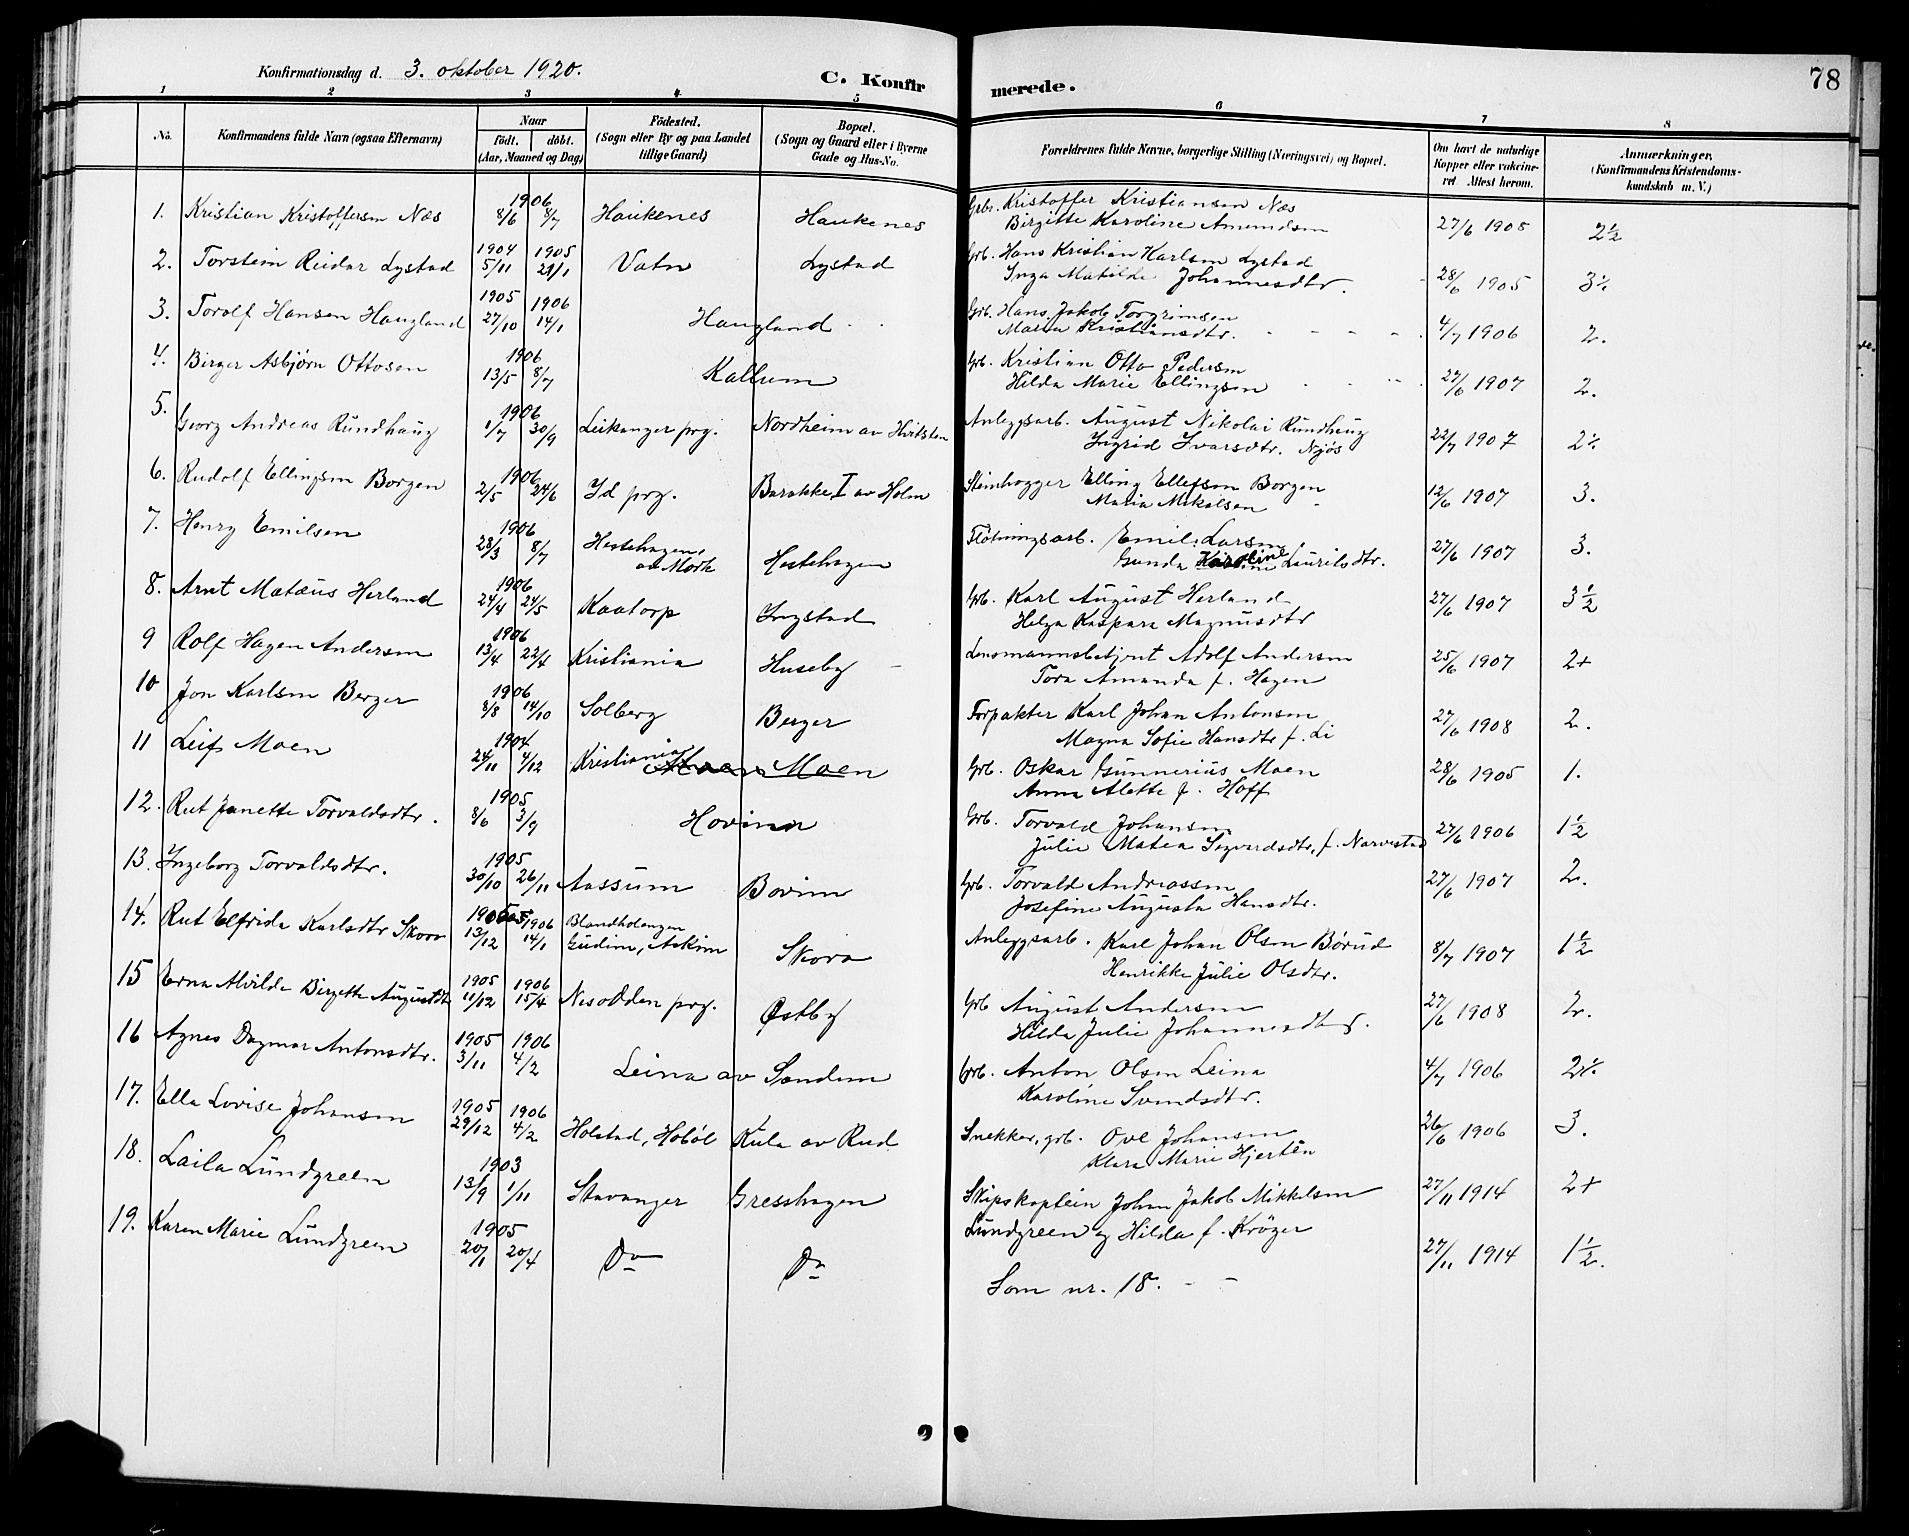 Konfirmationsdag d. 3. oktober 1920.
C. Konfirmerede.
78
1 2 3 4 5 6 7 8
No. Konfirmandens fulde Navn (ogsaa Efternavn) Naar født. døbt. (Aar, Maaned og Dag) Fødested. (Sogn eller By og paa Landet tillige Gaard) Bopæl. (Sogn og Gaard eller i Byerne Gade og Hus-No. Forældrenes fulde Navne, borgerlige Stilling (Næringsvei) og Bopæl. Om havt de naturlige Kopper eller vakcineret. Attest herom. Anmærkninger. (Konfirmandens Kristendomskundskab m. V.)
1. Kristian Kristoffersen Næs 1906 8/6 8/7 Haukenes Haukenes Grbr. Kristoffer Kristiansen Næs 27/6 1908 2½
Birgitte Karoline Amundsen
2. Torstein Reidar Lystad 1904 5/11 1905 29/1 Vatn Lystad Grb. Hans Kristian Karlsen Lystad 28/6 1905 3½
Inga Matilde Johannesdtr.
3. Torolf Hansen Haugland 1905 27/10 1906 14/1 Haugland Grb. Hans Jakob Torgrimsen 4/7 1906 2.
Maria Kristiansdtr.
4. Birger Asbjørn Ottosen 1906 13/5 8/7 Kallum Grb. Kristian Otto Pedersen 27/6 1907 2.
Hilda Marie Ellingsen
5. Georg Andreas Rundhaug 1906 1/7 30/9 Leikanger prg. Nordheim av Hvitsten Anleggsarb. August Nikolai Rundhaug 22/7 1907 2½
Ingrid Ivarsdtr. Njøs
6. Rudolf Ellingsen Borgen 1906 2/5 24/6 Id prg. Barakke I av Holm Steinhogger Elling Ellefsen Borgen 12/6 1907 3.
Maria Mikalsen
7. Henry Emilsen 1906 28/3 8/7 Hestehagen av Mørk Hestehagen Fløtningsarb. Emil Larsen 27/6 1907 3.
Gunda Karoline Lauritsdtr.
8. Arnt Matæus Herland 1906 24/4 24/5 Kaatorp Ingstad Grb. Karl August Herland 27/6 1907 3½
Helga Kaspara Magnusdtr
9 Rolf Hagen Andersen 1906 13/4 22/4 Kristiania Huseby Lensmannsbetjent Adolf Andersen 25/6 1907 2+
Tora Amanda f. Hagen
10 Jon Karlsen Berger 1906 8/8 14/10 Solberg Berger Forpakter Karl Johan Antonsen 27/6 1908 2.
Magna Sofie Hansdtr f. Li
11 Leif Moen 1904 24/11 4/12 Kristiania Moen Grb. Oskar Gunnerius Moen 28/6 1905 1.
Anna Alette f. Hoff
12. Rut Janette Torvaldsdtr. 1905 8/6 3/9 Hovin Grb. Torvald Johansen 27/6 1906 1½
Julie Matea Sigvardsdtr, f. Narvestad
13. Ingeborg Torvaldsdtr. 1905 30/10 26/11 Aassum Bovim Grb. Torvald Andreassen 27/6 1907 2.
Josefine Augusta Hansdtr.
14. Rut Elfrida Karlsdtr Skova 1905 13/12 1906 14/1 Gudim, Askim Skova Anleggsarb. Karl Johan Olsen Børud 8/7 1907 1½
Henrikke Julie Olsdtr.
15 Erna Alvilde Birgitte Augustdtr 1905 11/12 1906 15/4 Nesodden prg. Østby Grb August Andersen 27/6 1908 2.
Hilda Julie Johannesdtr.
16 Agnes Dagmar Antonsdtr. 1905 3/11 1906 4/2 Leina av Sundem Grb. Anton Olsen Leina 4/7 1906 2½.
Karoline Svendsdtr.
17. Ella Lovise Johansen 1905 29/12 1906 4/2 Holstad, Hobøl Kula av Rud Snekker, grb. Ove Johansen 26/6 1906 3.
Klara Marie Hjertén
18. Laila Lundgreen 1903 13/9 1/11 Stavanger Gresshagen Skipskaptein Johan Jakob Mikkelsen 27/11 1914 2+
Lundgreen og Hilda f. Krøger
19. Karen Marie Lundgreen 1905 20/1 20/4 Do Do Som nr. 18. 27/11 1914 1½.